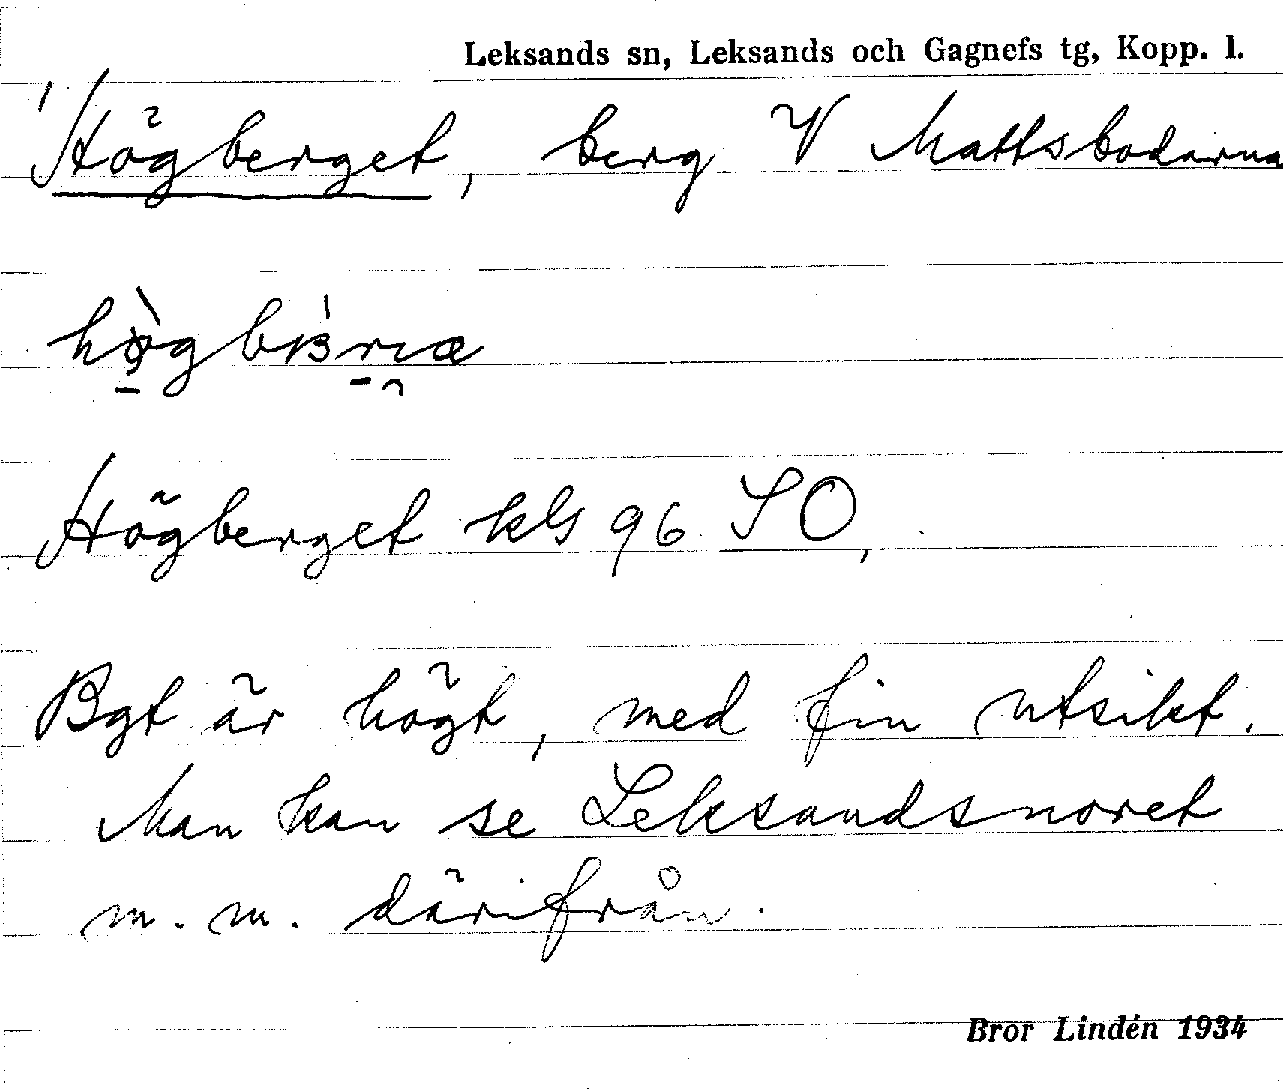 Leksands sn, Leksands och Gagnefs tg, Kopp. l.
Högberget, berg V Mattsbodarna
Högberget kbl 96 SO,
Bgt är högt, med fin utsikt.
Man kan se Leksandsnoret
m. m. därifrån.
Bror Lindén 1934